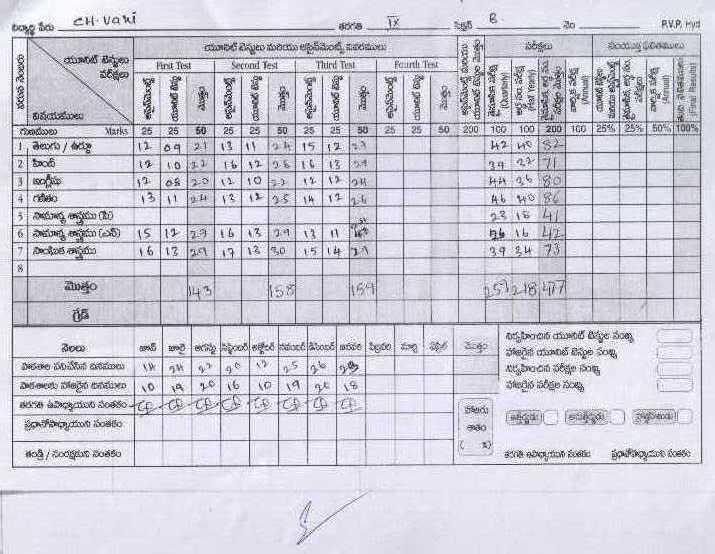 విద్యార్థి పేరు CH. Vani తరగతి IX సెక్షన్ B. నెం P.V.P. Hyd
వరుస నంబరు యూనిట్ టెస్టులు పరీక్షలు విషయములు యూనిట్ టెస్టులు మరియు అసైన్‌మెంట్స్ వివరములు పరీక్షలు సంయుక్త ఫలితములు
First Test Second Test Third Test Fourth Test
అసైన్‌మెంట్స్ యూనిట్ టెస్టు మొత్తం అసైన్‌మెంట్స్ యూనిట్ టెస్టు మొత్తం అసైన్‌మెంట్స్ యూనిట్ టెస్టు మొత్తం అసైన్‌మెంట్స్ యూనిట్ టెస్టు మొత్తం (Quarterly) (Half Yearly) (Annual) (Annual) (Final Results)
గుణములు Marks 25 25 50 25 25 50 25 25 50 25 25 50 200 100 100 200 100 25% 25% 50% 100%
1 తెలుగు / ఉర్దూ 12 09 21 13 11 24 15 12 27 42 40 82
2 హిందీ 12 10 22 16 12 28 16 13 29 39 32 71
3 ఇంగ్లీషు 12 08 20 12 10 22 12 12 24 44 36 80
4 గణితం 13 11 24 13 12 25 14 12 26 46 40 86
5 సామాన్య శాస్త్రము (పి) 23 18 41
6 సామాన్య శాస్త్రము (ఎన్) 15 12 27 16 13 29 13 11 26 16 42
7 సాంఘిక శాస్త్రము 16 13 29 17 13 30 15 14 29 39 34 73
8
మొత్తం 143 158 159 259 218 477
గ్రేడ్
నెలలు జూన్ జూలై ఆగస్టు సెప్టెంబర్ అక్టోబర్ నవంబర్ డిసెంబర్ జనవరి ఫిబ్రవరి మార్చి ఏప్రిల్ మొత్తం
పాఠశాల పనిచేసిన దినములు 14 24 22 20 12 25 26 23
పాఠశాలకు హాజరైన దినములు 10 19 20 16 10 19 20 18
తరగతి ఉపాధ్యాయుని సంతకం
ప్రధానోపాధ్యాయుని సంతకం
తండ్రి / సంరక్షకుని సంతకం
నిర్వహించిన యూనిట్ టెస్టుల సంఖ్య
హాజరైన యూనిట్ టెస్టుల సంఖ్య
నిర్వహించిన పరీక్షల సంఖ్య
హాజరైన పరీక్షల సంఖ్య
హాజరు శాతం ( %)
తరగతి ఉపాధ్యాయుని సంతకం ప్రధానోపాధ్యాయుని సంతకం